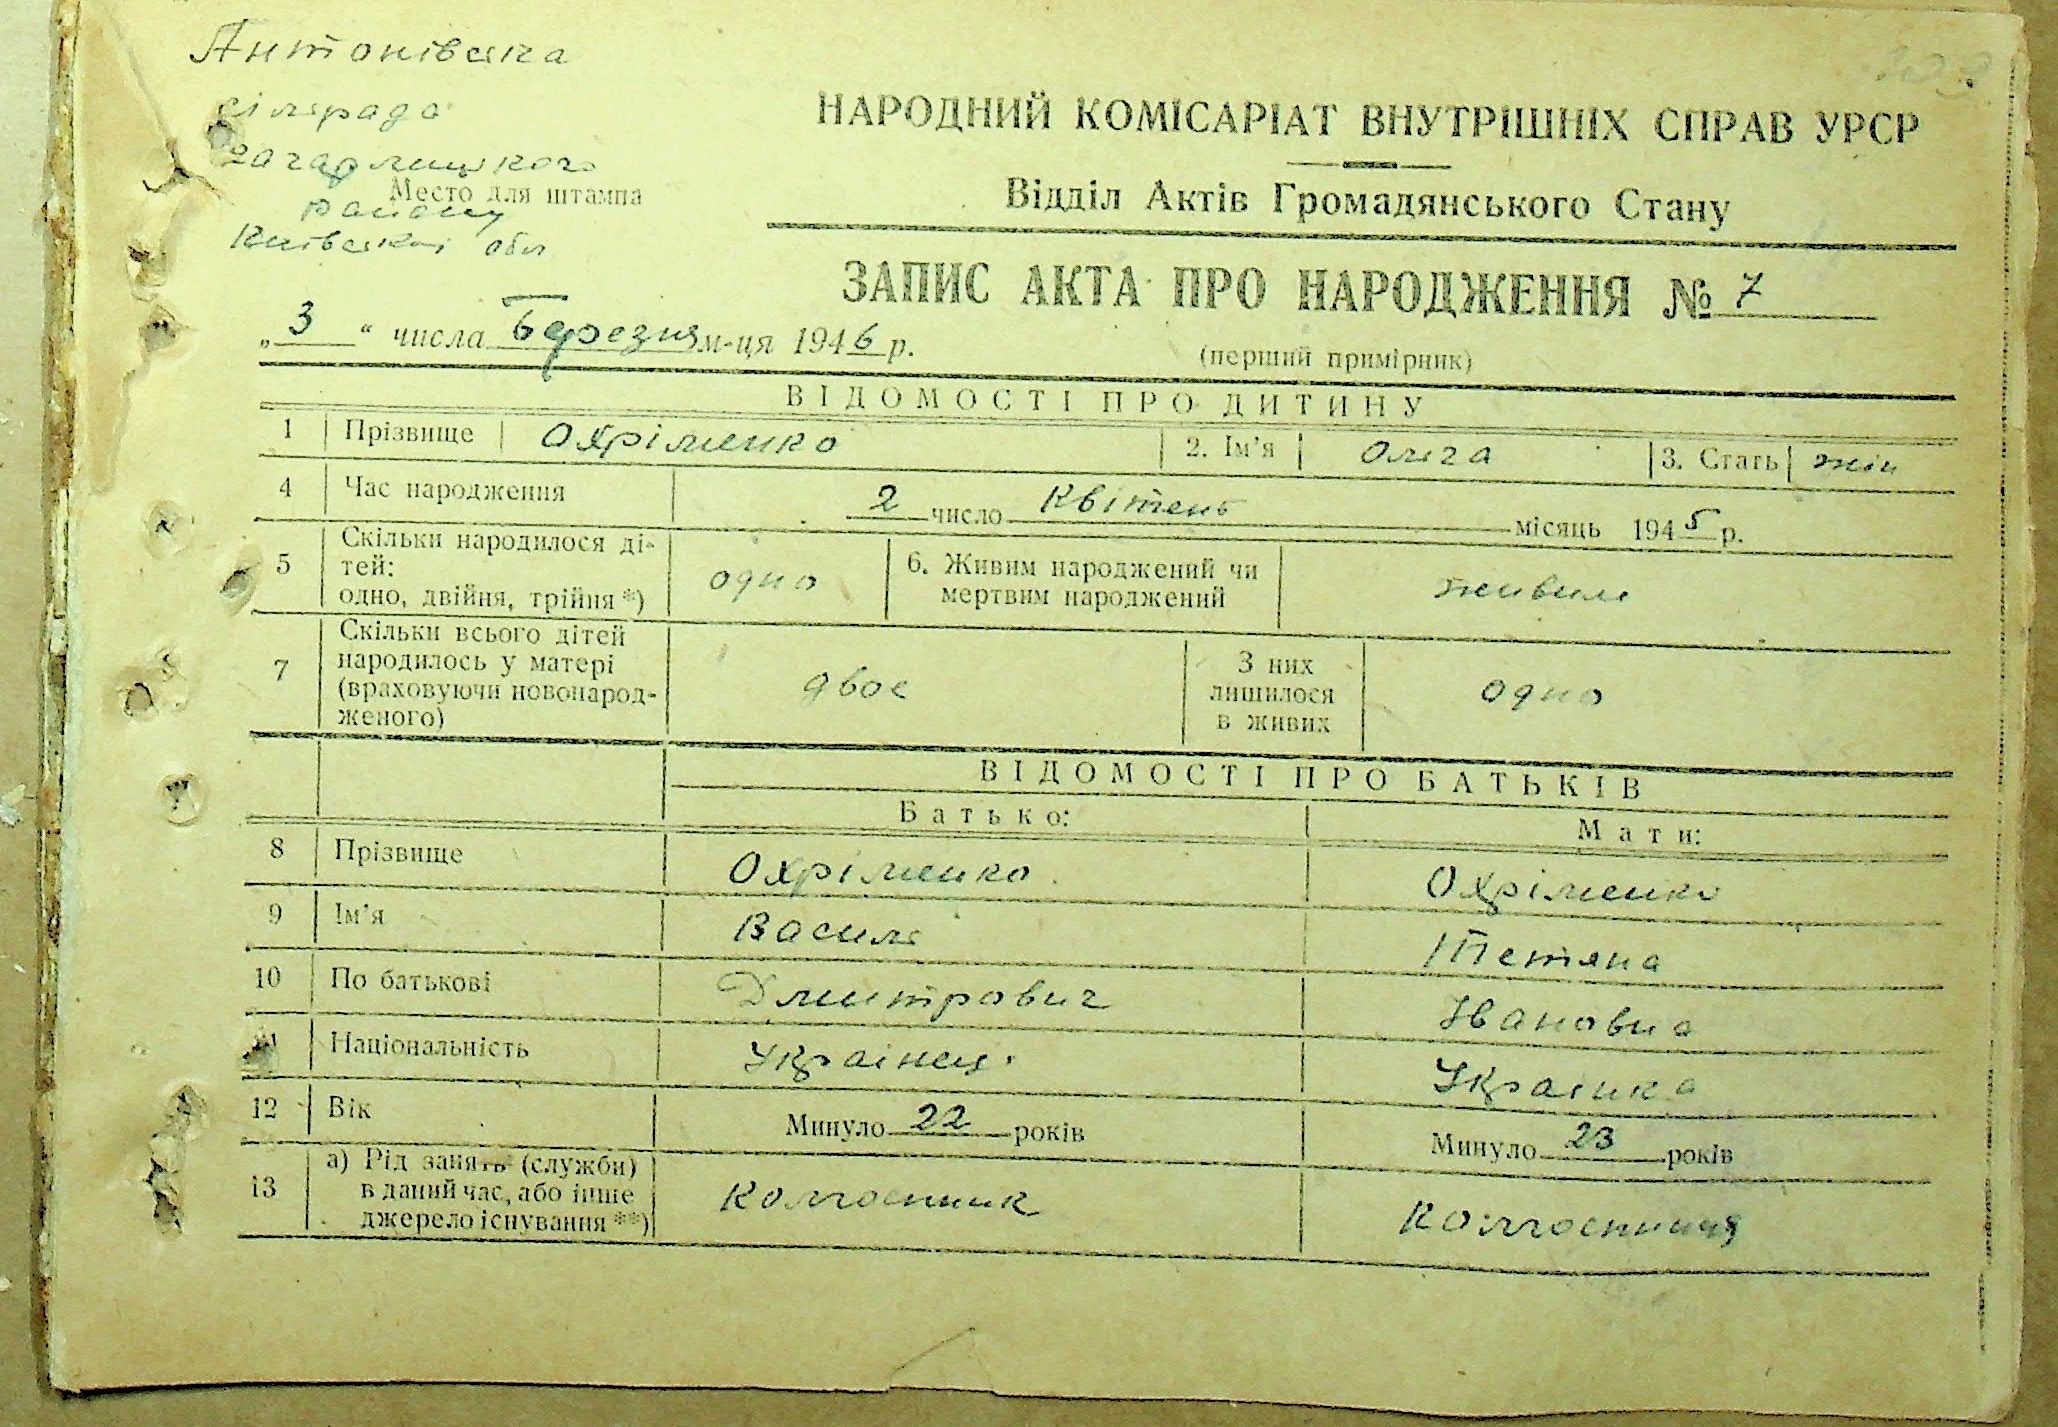 Антонівська
сільрада
Кагарлицького
Место для штампа
району
Київської обл
НАРОДНИЙ КОМІСАРІАТ ВНУТРІШНІХ СПРАВ УРСР
Відділ Актів Громадянського Стану
ЗАПИС АКТА ПРО НАРОДЖЕННЯ № 7
„3“ числа Березня м-ця 1946 р.
(перший примірник)
ВІДОМОСТІ ПРО ДИТИНУ
1 Прізвище Охріменко 2. Ім'я Ольга 3. Стать жін
4 Час народження 2 число Квітень місяць 1945 р.
5 Скільки народилося ді-
тей:
одно, двійня, трійня *) одно 6. Живим народжений чи
мертвим народжений живим
7 Скільки всього дітей
народилось у матері
(враховуючи новонарод-
женого) двоє З них
лишилося
в живих одно
ВІДОМОСТІ ПРО БАТЬКІВ
Батько: Мати:
8 Прізвище Охріменко Охріменко
9 Ім'я Василь Тетяна
10 По батькові Дмитрович Івановна
11 Національність Українець Українка
12 Вік Минуло 22 років Минуло 23 років
13 а) Рід занять (служби)
в даний час, або інше
джерело існування **) Колгоспник Колгоспниця